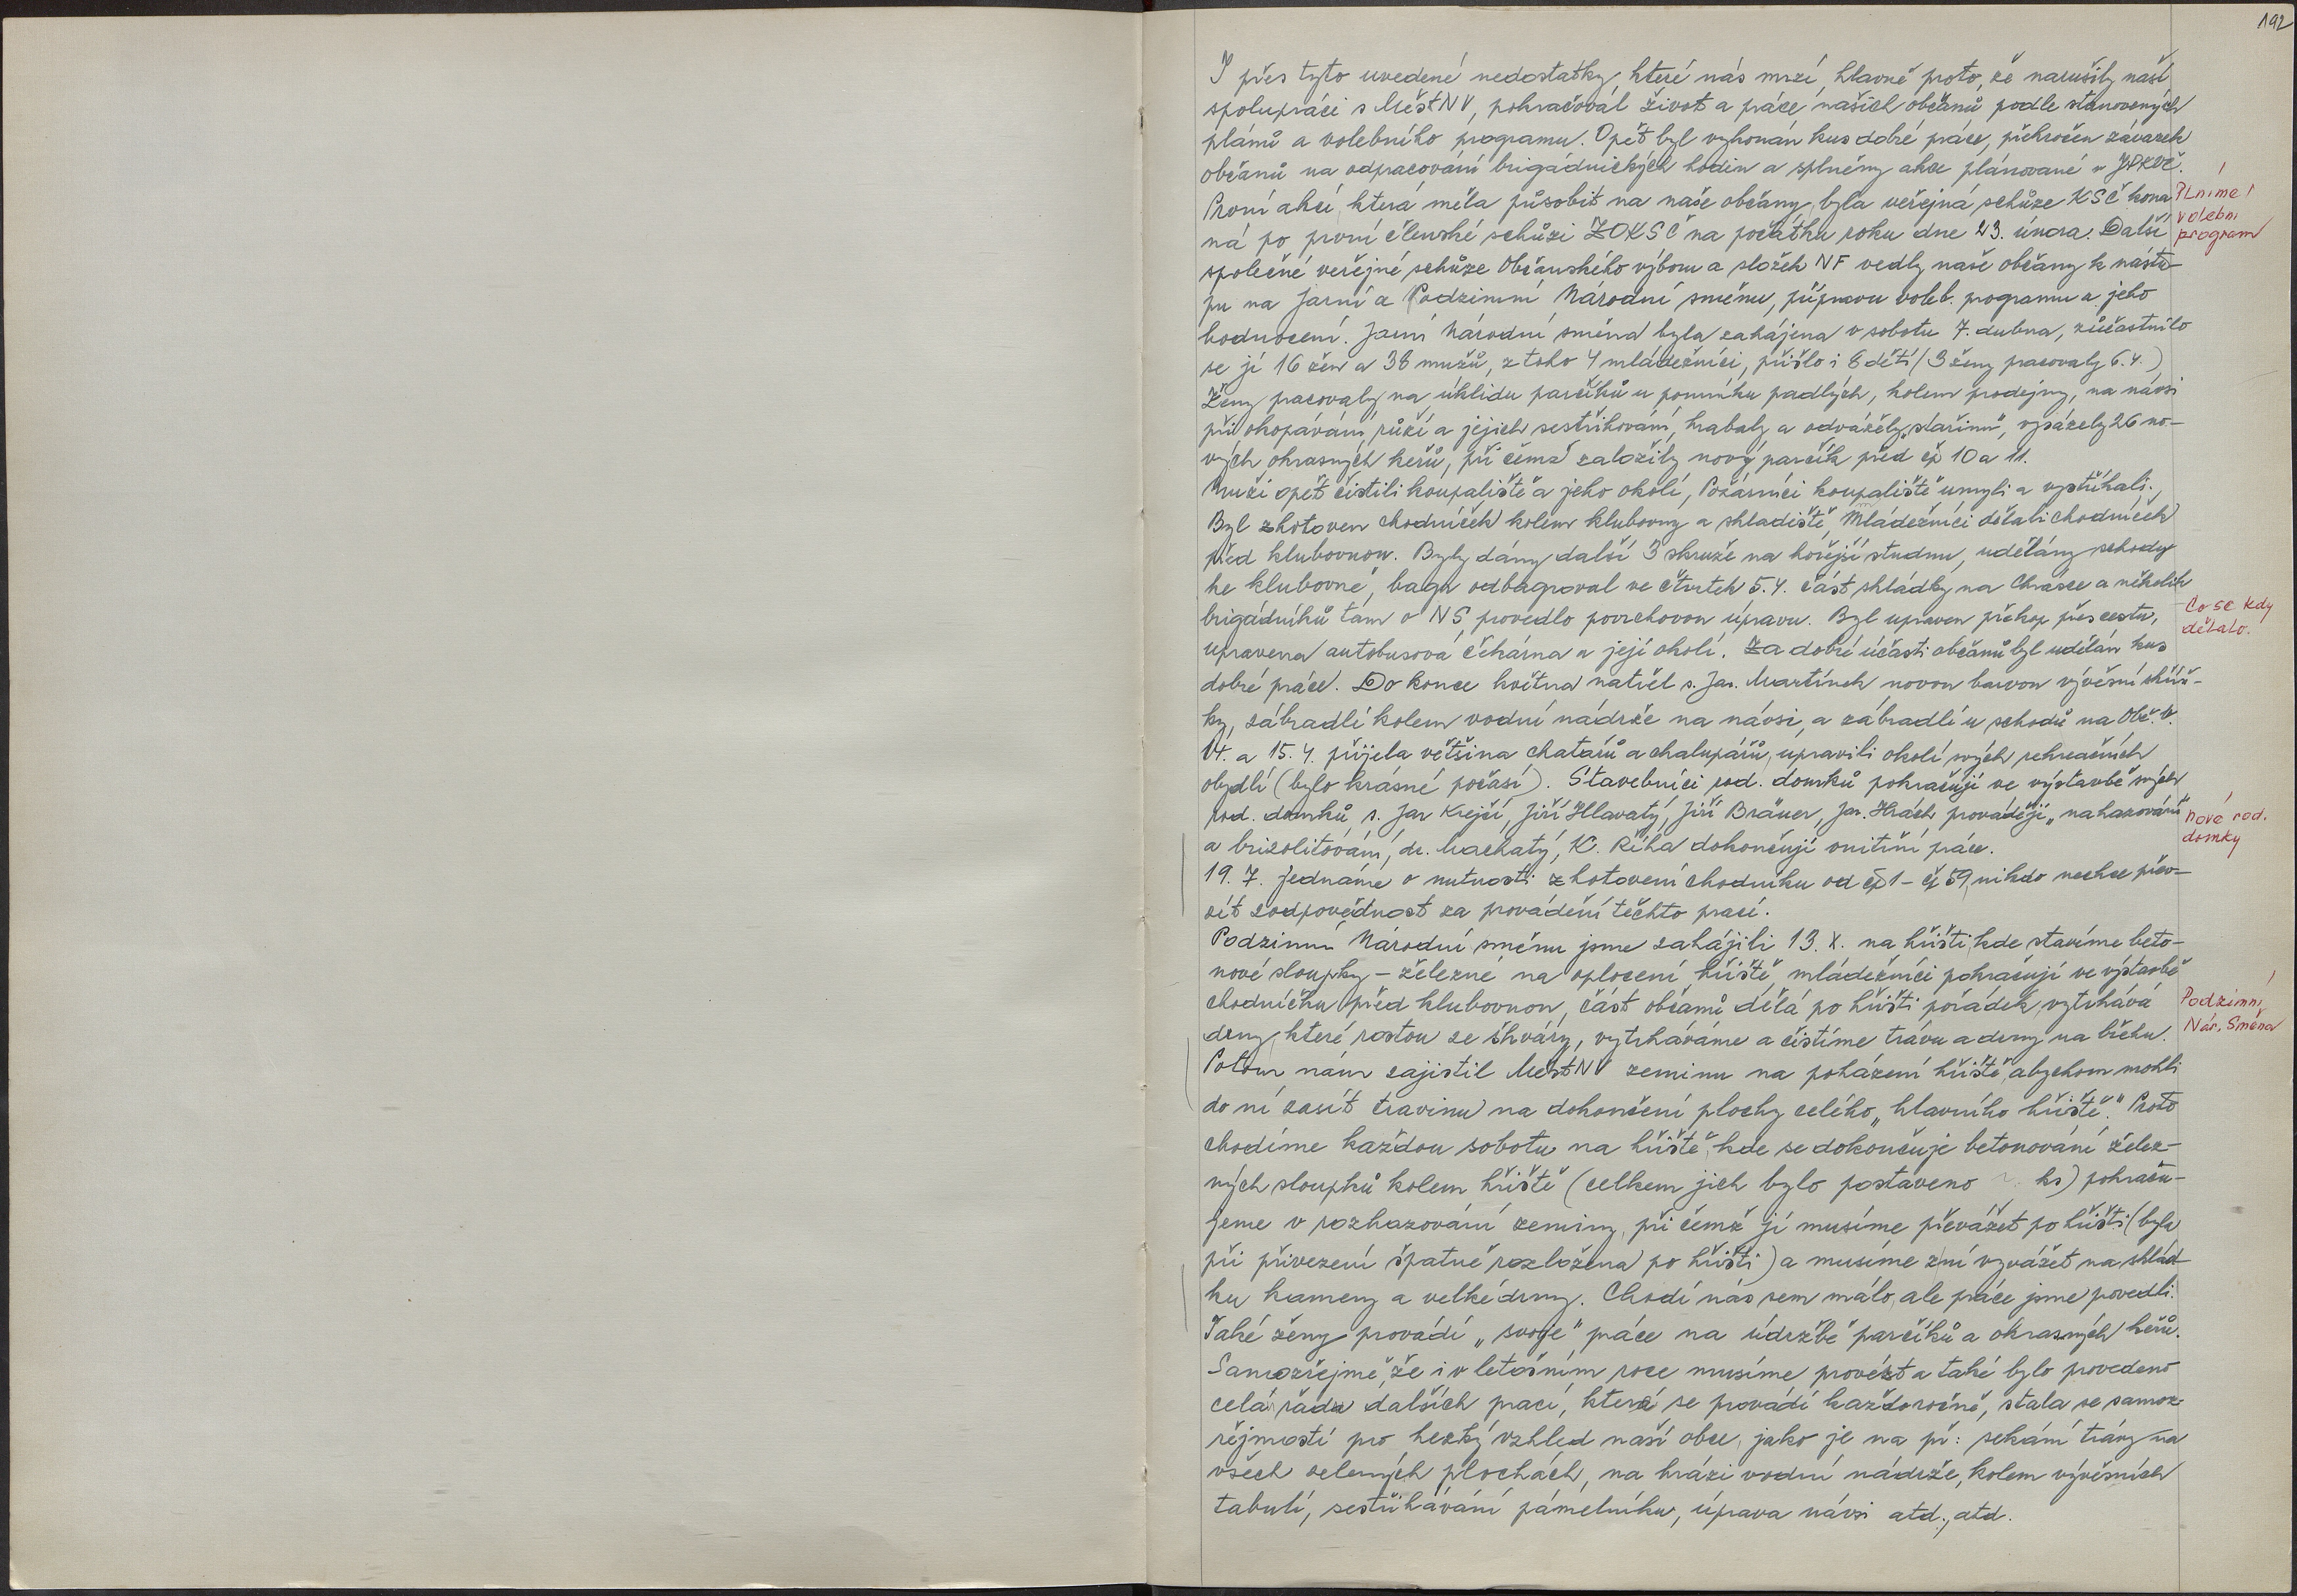 192
I přes tyto uvedené nedostatky, které nás mrzí, hlavně proto, že narušily naši
spolupráci s MěstNV, pokračoval život a práce našich občanů podle stanovených
plánů a volebního programu. Opět byl vykonán kus dobré práce, překročen závazek
občanů na odpracování brigádnických hodin a splněny akce plánované
První akcí, která měla působit na naše občany, byla veřejná schůze KSČ kona
Plníme
volební
program
ná po první členské schůzi ZOKSČ na počátku roku dne 23. února. Další
společné veřejné schůze Občanského výboru a složek NF vedly naše občany k nástu-
pu na Jarní a Podzimní Národní směnu, přípravu voleb. programu a jeho
hodnocení. Jarní Národní směna byla zahájena v sobotu 7. dubna, zúčastnilo
se jí 16 žen a 38 mužů, z toho 4 mládežníci, přišlo i 8 dětí (3 ženy pracovaly 6.4.)
Ženy pracovaly na úklidu parčíků u pomníku padlých, kolem prodejny, na návsi
při okopávání růží a jejich sestřihování, hrabaly a odvážely „stařinu", vysázely 26 no-
vých okrasných keřů, při čemž založily nový parčík před čp 10 a 11.
Muži opět čistili koupaliště a jeho okolí, Požárníci koupaliště umyli a vystříkali.
Byl zhotoven chodníček kolem klubovny a skladiště, Mládežníci dělali chodníček
před klubovnou. Byly dány další 3 skruže na hořejší studnu, udělány schody
ke klubovně, bagr odbagroval ve čtvrtek 5.4. část skládky na Chrásce a několik
brigádníků tam o NS provedlo povrchovou úpravu. Byl upraven příkop přes cestu,
Co se kdy
dělalo.
upravena autobusová čekárna a její okolí. Za dobré účasti občanů byl udělán kus
dobré práce. Do konce května natřel s. Jar. Martínek novou barvou vývěsní skříň-
ky, zábradlí kolem vodní nádrže na návsi, a zábradlí u schodů na Obč. v.
14. a 15.4. přijela většina chatařů a chalupářů, upravili okolí svých rekreačních
obydlí (bylo krásné počasí). Stavebníci rod. domků pokračují ve výstavbě svých
rod. domků s. Jar Krejčí, Jiří Hlavatý, Jiří Bräuer, Jar. Hrách provádějí „nahazování"
nové rod.
domky
a brizolitování, dr. Machatý, K. Říha dokončují vnitřní práce.
19. 7. Jednáme o nutnosti zhotovení chodníku od čp 1 - čp 59, nikdo nechce přev-
zít zodpovědnost za provádění těchto prací.
Podzimní Národní směnu jsme zahájili 13. X. na hřišti, kde stavíme beto-
nové sloupky - železné na oplocení hřiště, mládežníci pokračují ve výstavbě
chodníčku před klubovnou, část občanů dělá po hřišti pořádek, vytrhává
Podzimní
Nár. Směna
drny, které rostou ze škváry, vytrháváme a čistíme trávu a drny na břehu.
Potom nám zajistil MěstNV zeminu na poházení hřiště, abychom mohli
do ní zasít travinu na dokončení plochy celého „hlavního hřiště." Proto
chodíme každou sobotu na hřiště, kde se dokončuje betonování želez-
ných sloupků kolem hřiště (celkem jich bylo postaveno ks) pokraču-
jeme v rozhazování zeminy, při čemž jí musíme převážet po hřišti (byla
při přivezení špatně rozložena po hřišti) a musíme z ní vyvážet na sklád-
ku kameny a velké drny. Chodí nás sem málo, ale práce jsme povedli.
Také ženy provádí „svoje" práce na údržbě parčíků a okrasných keřů.
Samozřejmě, že i v letošním roce musíme provézt a také bylo provedeno
celá řada dalších prací, která se provádí každoročně, stala se samoz-
řejmostí pro hezký vzhled naší obce, jako je na př: sekání trávy na
všech zelených plochách, na hrázi vodní nádrže, kolem vývěsních
tabulí, sestřihávání pámelníku, úprava návsi atd., atd.